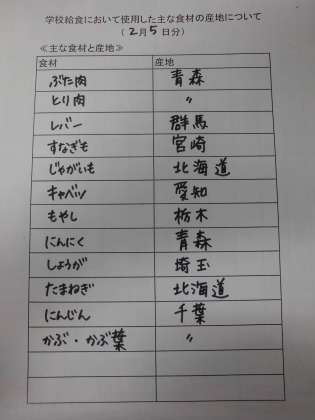 学校給食において使用した主な食材の産地について
（2月5日分）
≪主な食材と産地≫
食材 産地
ぶた肉 青森
とり肉 〃
レバー 群馬
すなぎも 宮崎
じゃがいも 北海道
キャベツ 愛知
もやし 栃木
にんにく 青森
しょうが 埼玉
たまねぎ 北海道
にんじん 千葉
かぶ・かぶ葉 〃